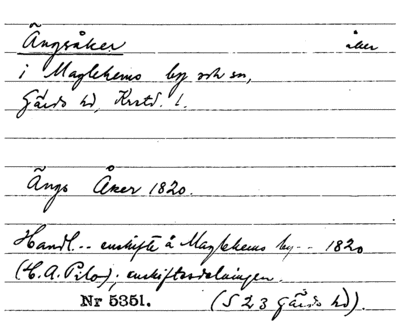 Ängsåker åker
i Maglehems by och sn,
Gärds hd, Krstd. l.
Ängs Åker 1820.
Handl... enskifte å Maglehems by... 1820
(H. A. Pilo); enskiftesdelningen.
Nr 5351. (S 23 Gärds hd).